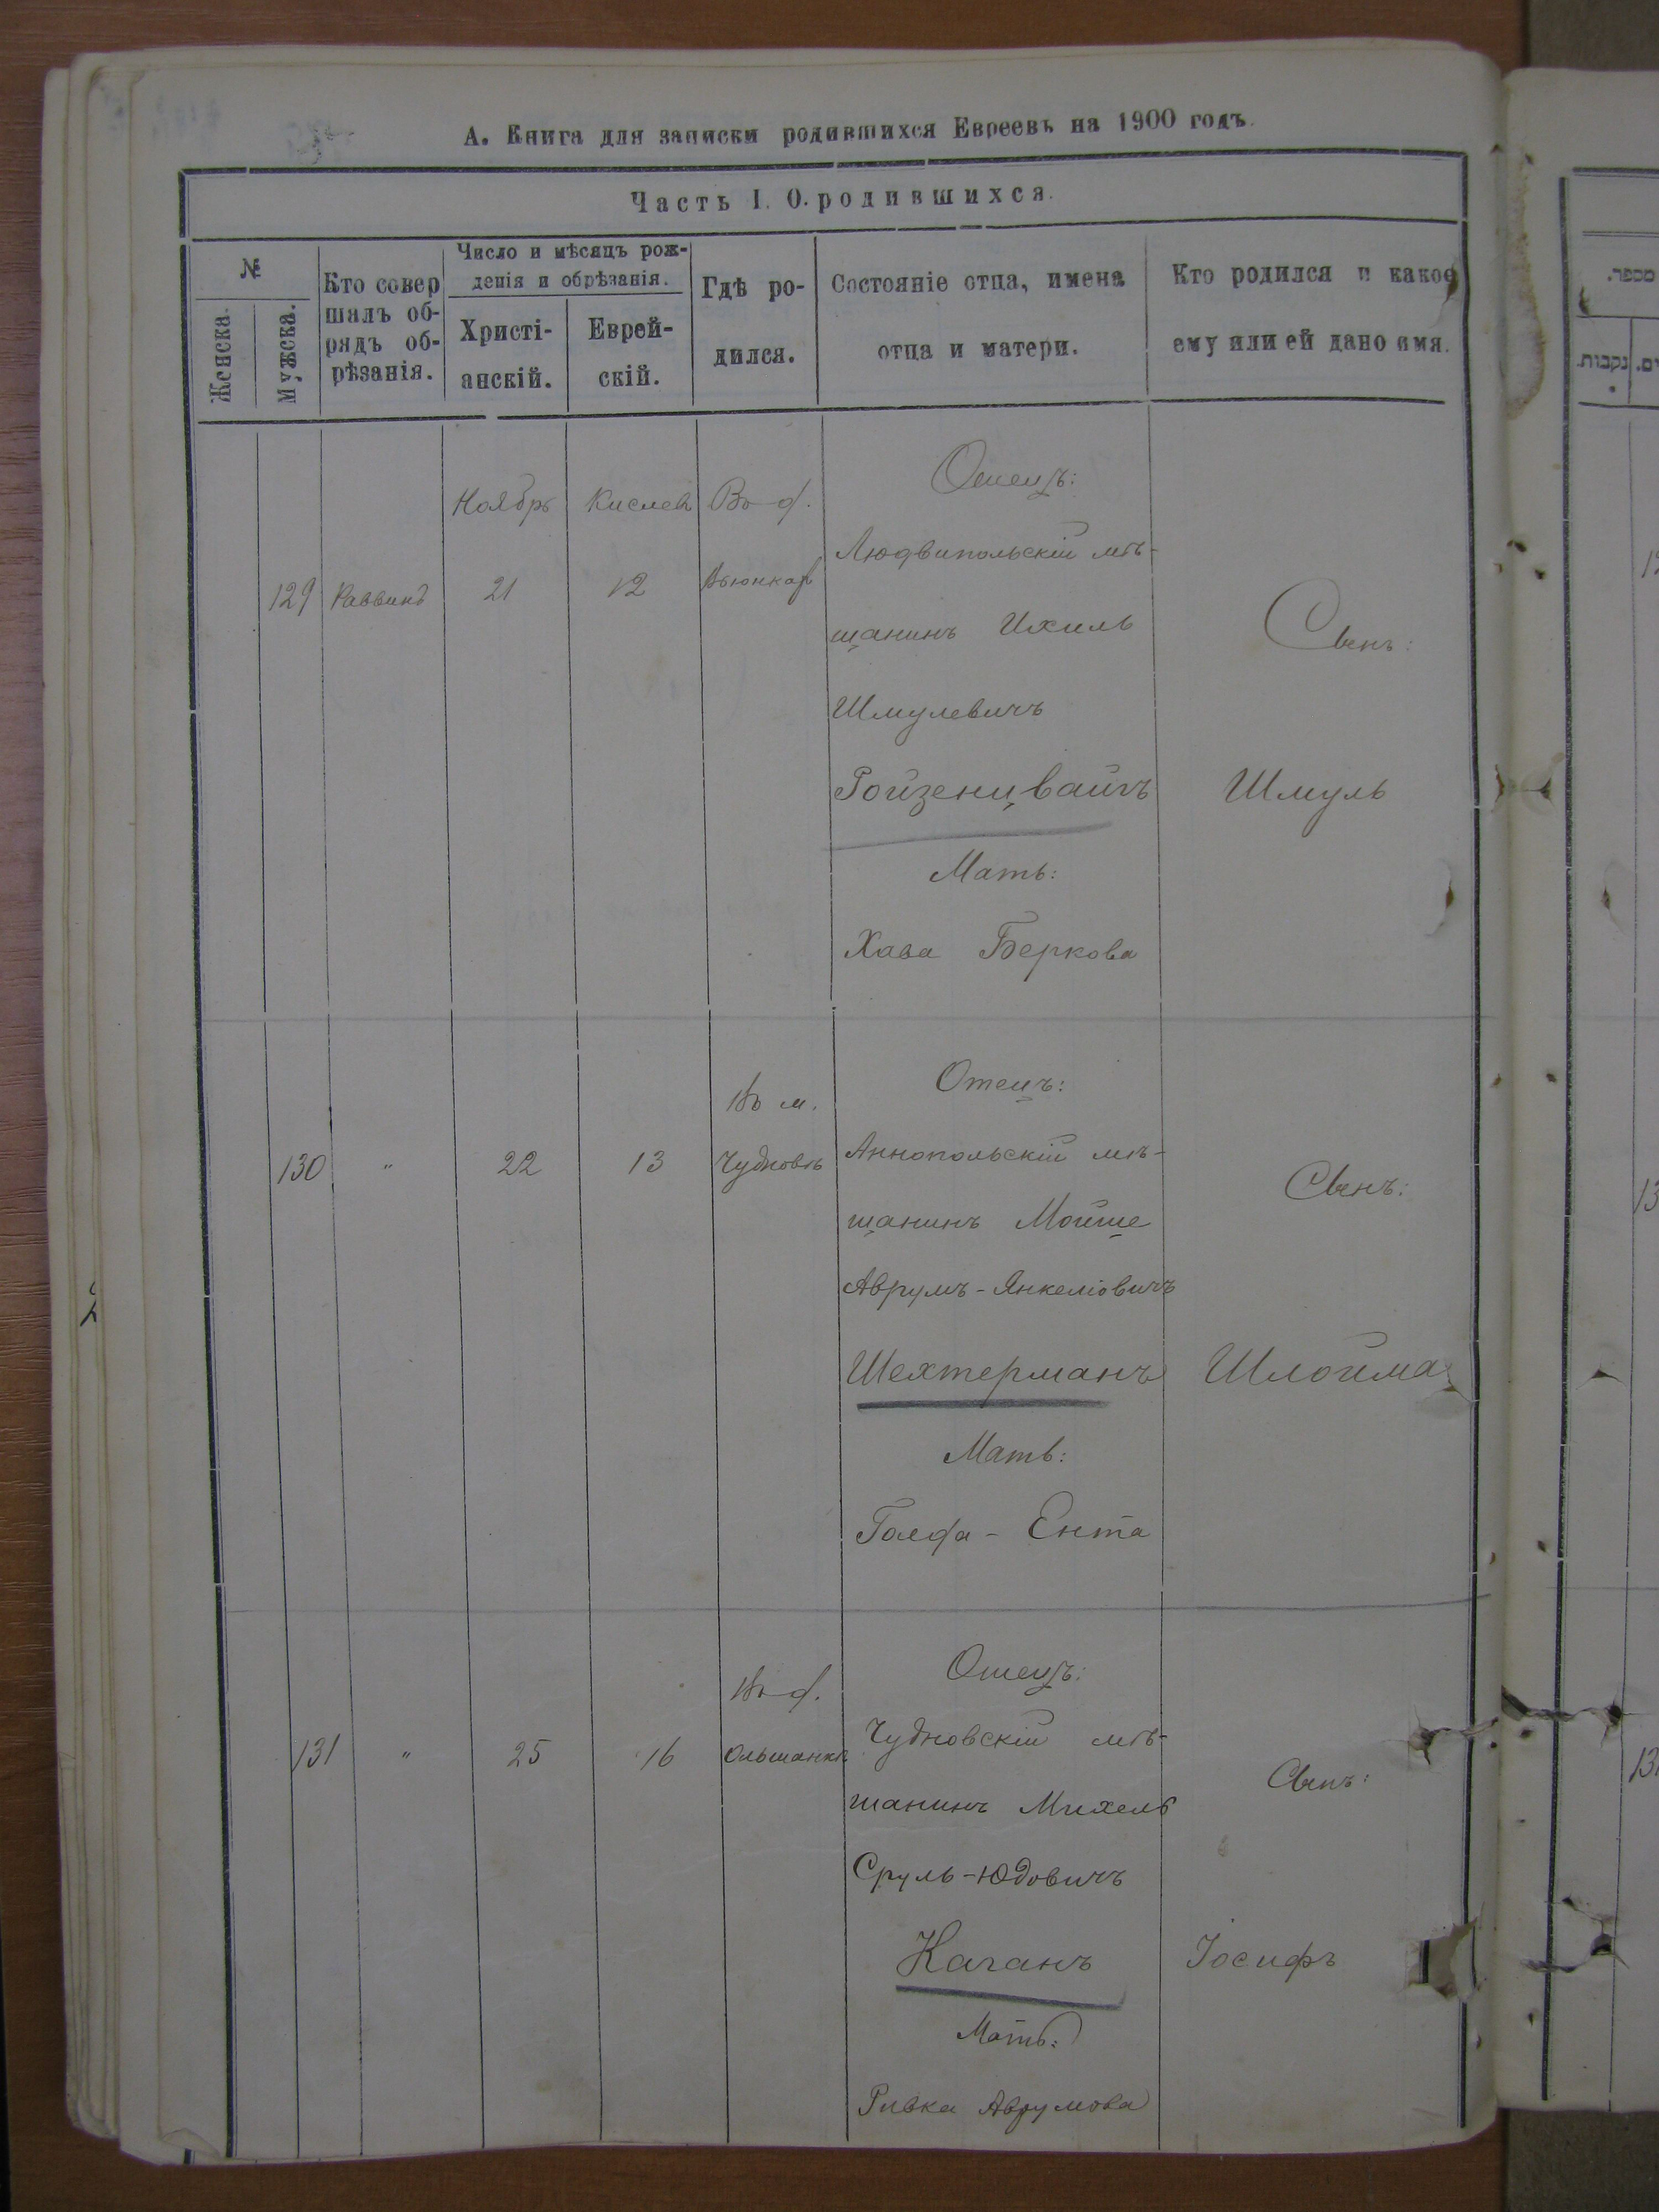 А. Книга для записки родившихся Евреевъ на 1900 годъ.
Часть I. О родившихся.
№
Женска.
Мужска.
Кто совер
шалъ об-
рядъ об-
рѣзанія.
Число и мѣсяцъ рож-
денія и обрѣзанія.
Христі-
анскій.
Еврей-
скій.
Гдѣ ро-
дился.
Состояніе отца, имена
отца и матери.
Кто родился и какое
ему или ей дано имя.
Ноябрь
Кислевъ
Въ д.
129
Раввинъ
21
12
Отецъ:
Людвипольскій мѣ-
щанинъ Ихиль
Шмулевичъ
Ройзенцвайгъ
Мать:
Хава Беркова
Сынъ:
Шмуль
130
"
22
13
Въ м.
Чудновѣ
Отецъ:
Аннопольскій мѣ-
щанинъ Мойше
Аврумъ-Янкеліовичъ
Шехтерманъ
Мать:
Голда - Ента
Сынъ:
Шлойма
131
"
25
16
Въ д.
Ольшанкѣ
Отецъ:
Чудновскій мѣ-
щанинъ Михель
Сруль-Юдовичъ
Каганъ
Мать:
Ривка Аврумова
Сынъ:
Іосифъ
מספר.
נקבות.